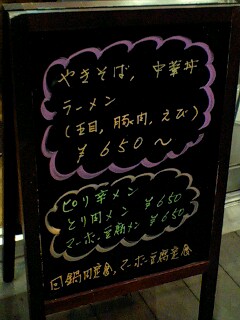 やきそば, 中華丼
ラーメン
(五目, 豚肉, えび)
¥650〜
ピリ辛メン ¥650
とり肉メン ¥650
マーボー豆腐メン ¥650
回鍋肉定食, マーボー豆腐定食